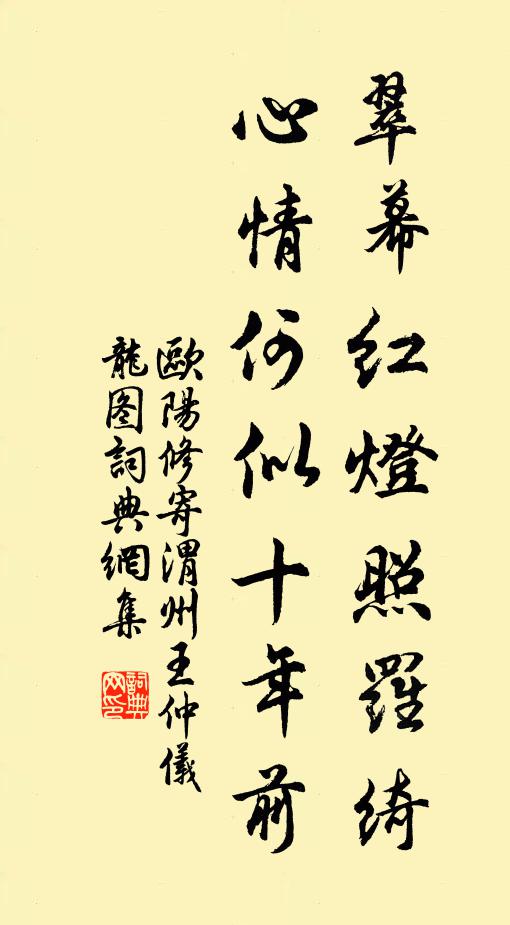 翠幕紅燈照羅綺
心情何似十年前
歐陽修寄渭州王仲儀
龍图詞典網集
詞典网印